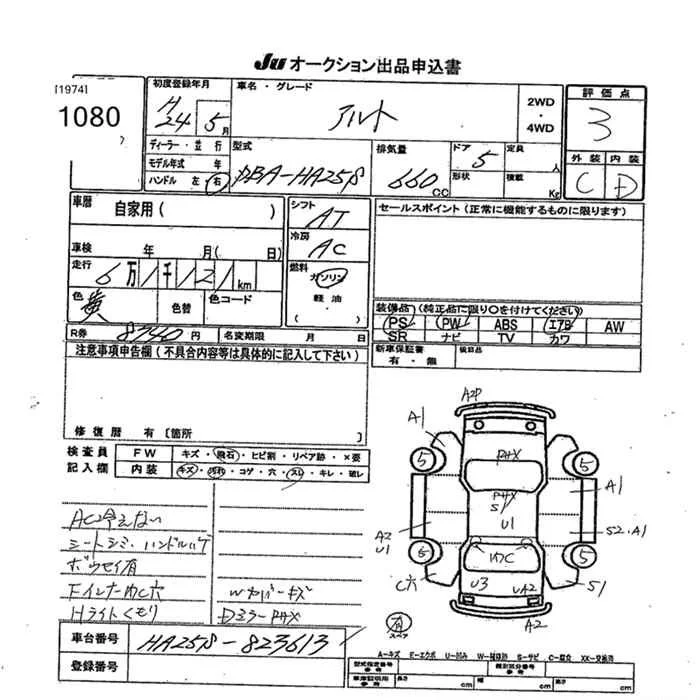 JU オークション出品申込書
[1974]
1080
初度登録年月
H
24 5月
車名・グレード
アルト
2WD
・
4WD
評価点
3
外装 内装
C D
ディーラー・並行
モデル年式 年
ハンドル 左・右
型式
DBA-HA25S
排気量
660 CC
ドア 5
定員 人
形状
積載 Kg
車歴
自家用( )
車検 年 月( 日)
走行 6万1千121km
色 黄
色替
色コード
シフト
AT
冷房
AC
燃料
ガソリン
軽油
・( )
セールスポイント(正常に機能するものに限ります)
装備品(純正品に限り○を付けてください)
PS PW ABS エアB AW
SR ナビ TV カワ
新車保証書
有・無
後日品
R券 8740円
名変期限 月 日
注意事項申告欄(不具合内容等は具体的に記入して下さい)
修復歴 有〔箇所 〕
検査員
記入欄
FW キズ・飛石・ヒビ割・リペア跡・×要
内装 キズ・汚れ・コゲ・穴・スレ・キレ・破レ
AC冷えない
シートシミ・ハンドルハゲ
ボウセイ有
Hライトくもり
Dミラー
車台番号 HA25S-823613
登録番号
A2P
A1
5
5
A1
PHX
PHX
S1
U1
A2
U1
S2・A1
5
5
C穴
U3
UA2
S1
A2
スペア
A-キズ E-エクボ U-凹み W-補修跡 S-サビ C-腐食 XX-交換済
型式指定番号
参考
類別区分番号
参考
車庫証明用
参考
長さ cm 幅 cm 高さ cm